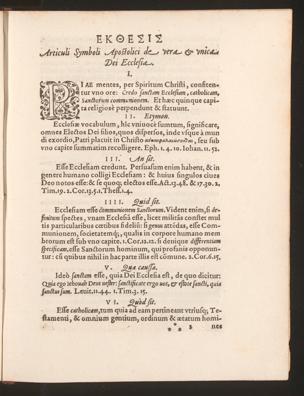 ΕΚΘΕΣΙΣ
Articuli Symboli Apostolici de vera & vnica
Dei Ecclesia.
I.
PIAE mentes, per Spiritum Christi, confiten-
tur vno ore: Credo sanctam Ecclesiam, catholicam,
Sanctorum communionem. Et hæc quinque capi-
ta religiosè perpendunt & statuunt.
II. Etymon.
Ecclesiæ vocabulum, hîc vniuocè sumtum, significare,
omnes Electos Dei filios, quos dispersos, inde vsque à mun
di exordio, Patri placuit in Christo sub
vno capite summatim recolligere. Eph. 1. 4. 10. Iohan. 11. 52.
III. An sit.
Esse Ecclesiam credunt. Persuasum enim habent, & in
genere humano colligi Ecclesiam: & huius singulos ciues
Deo notos esse: & se quoq; electos esse. Act. 13. 48. & 17. 30. 2.
Tim. 19. 2. Cor. 13. 5. 1. Thess. 1. 4.
IIII. Quid sit.
Ecclesiam esse communionem Sanctorum. Vident enim, si de-
finitum spectes, vnam Ecclesiã esse, licet militãs constet mul
tis particularibus cœtibus fidelium: si attẽdas, esse Com-
munionem, societatemq́;, qualis in corpore humano mem
brorum est sub vno capite. 1. Cor. 12. 12. si denique differentiam
specificam, esse Sanctorum hominum, qui profanis opponun-
tur: cũ quibus nihil in hac parte illis est cõmune. 2. Cor. 6. 15.
V. Qua causa.
Ideò sanctam esse, quia Dei Ecclesia est, de quo dicitur:
Quia ego Iehouah Deus vester: sanctificate ergo vos, & estote sancti, quia
sanctus sum. Leuit. 11. 44. 1. Tim. 3. 15.
VI. Quòd sit.
Esse catholicam, tum quia ad eam pertineant vtriusq; Te-
stamenti, & omnium gentium, ordinum & ætatum homi-
nes